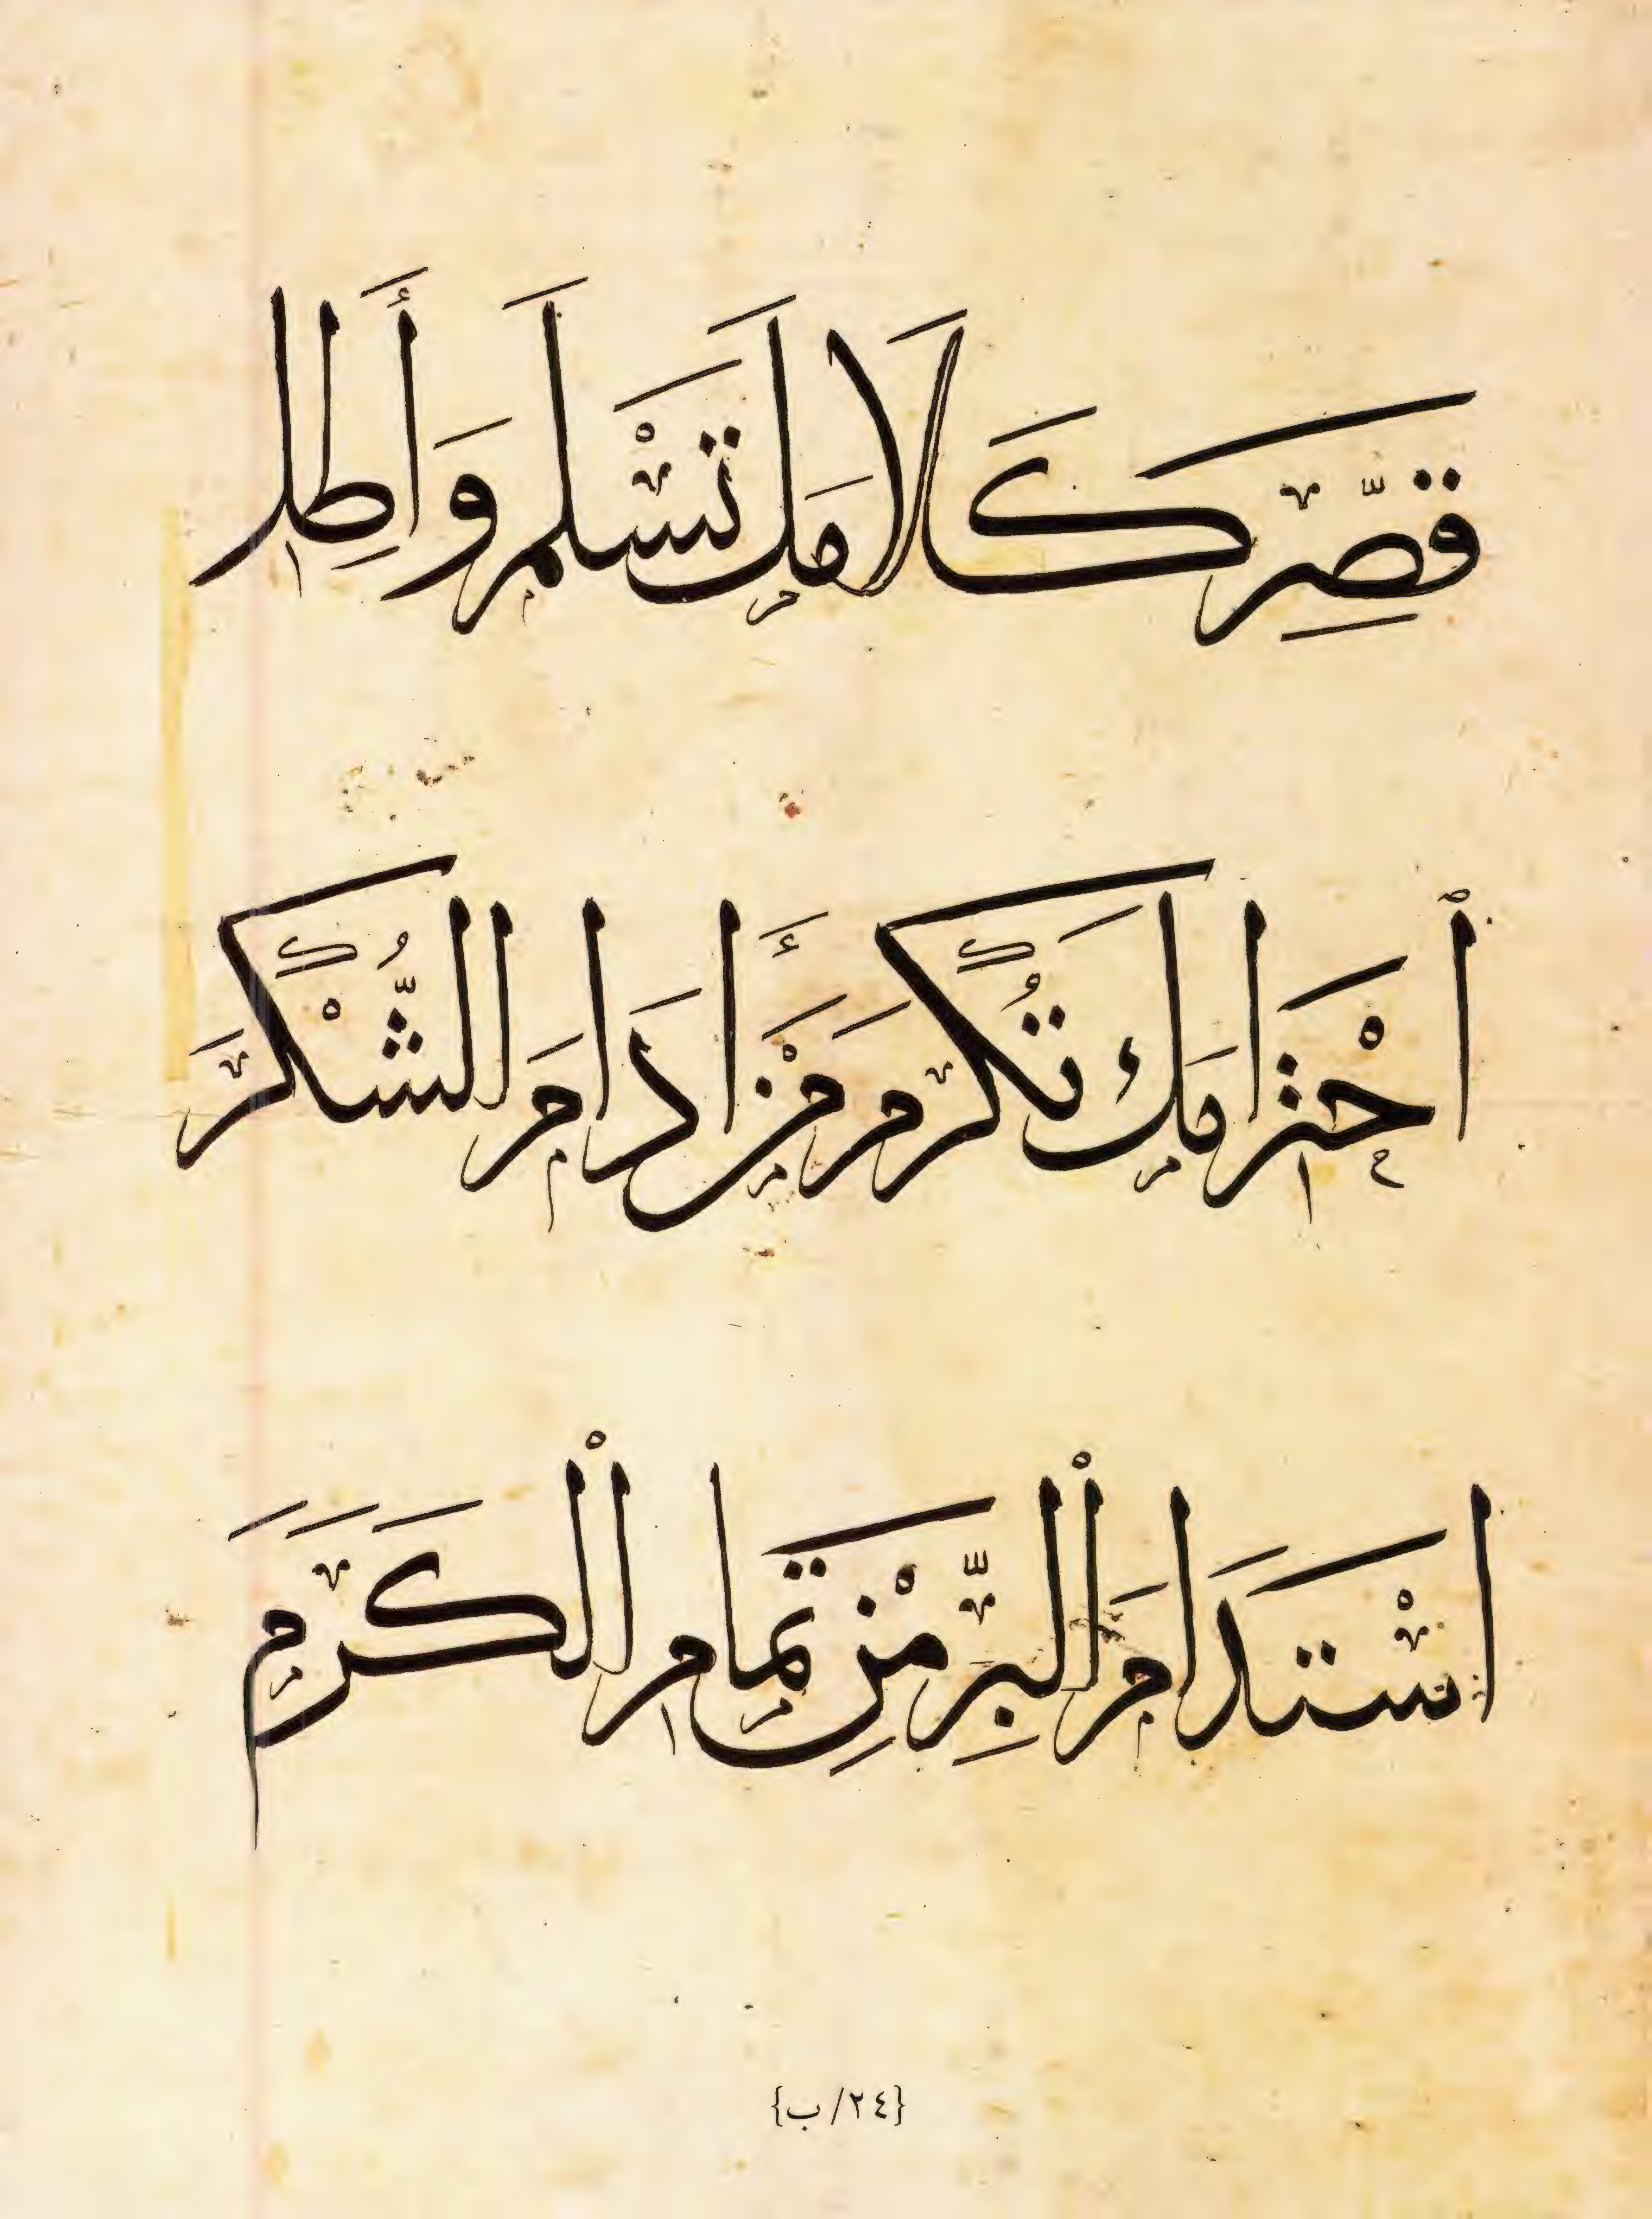 قَصِّرْ كَلَامَكَ تَسْلَمْ وَأَطِلِ
ٱحْتِرَامَكَ تُكْرَمْ مَنْ أَدَامَ الشُّكْرَ
اسْتَدَامَ الْبِرَّ مِنْ تَمَامِ الْكَرَمِ
{٢٤/ب}